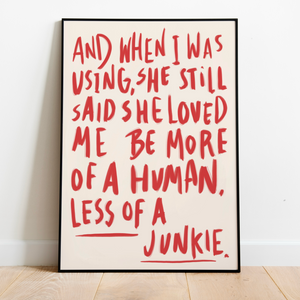 AND WHEN I WAS
USING, SHE STILL
SAID SHE LOVED
ME BE MORE
OF A HUMAN,
LESS OF A
JUNKIE.